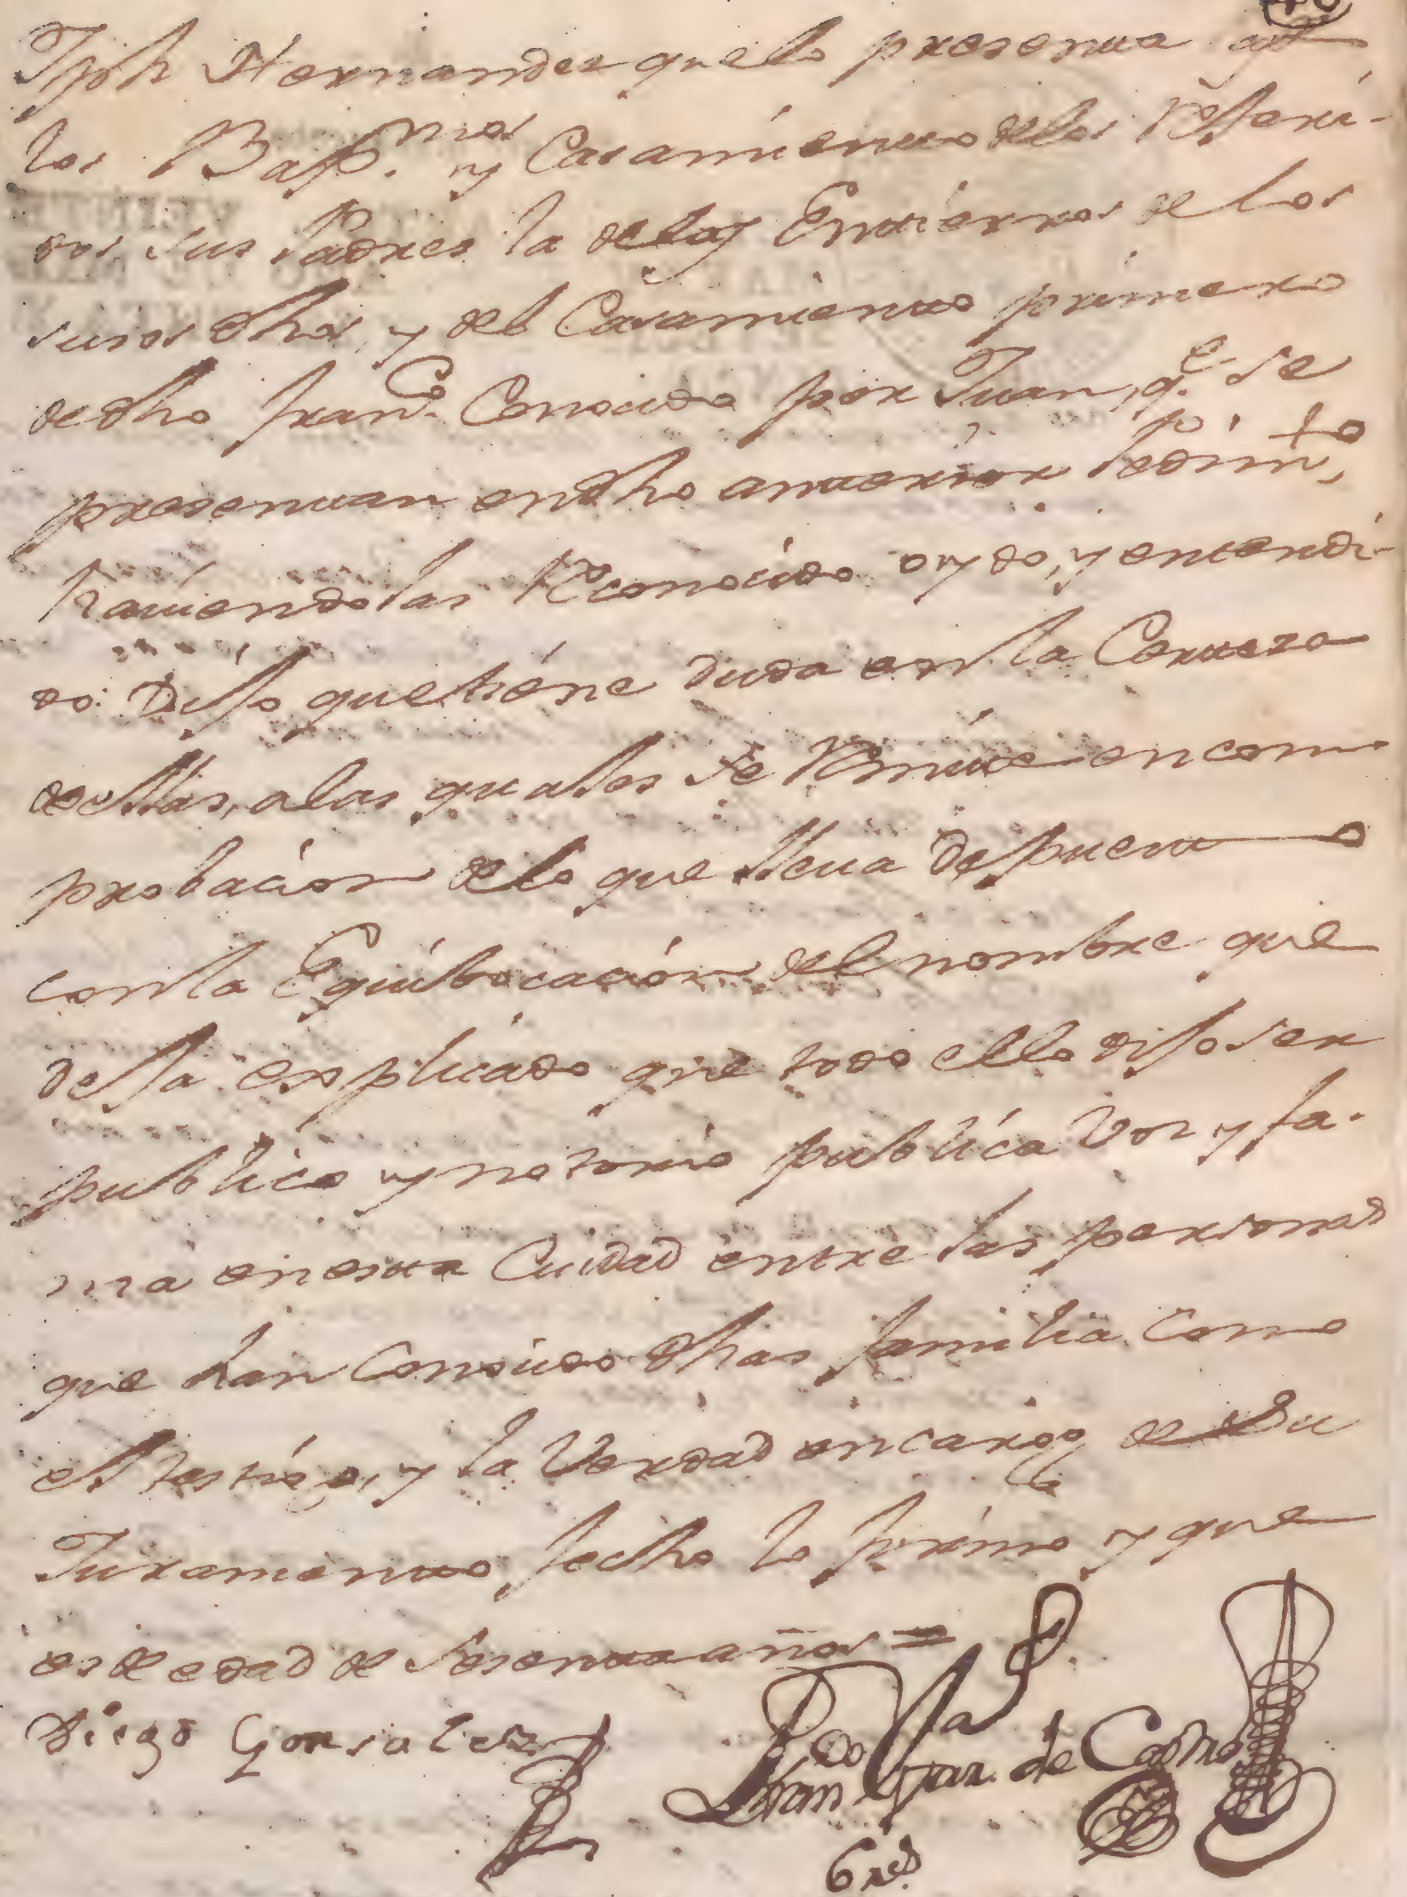 Jph Hernandez que lo presenta
los Bap.mos y Casamiento de los Referi-
dos sus Padres la de los Entierros de los
suso dhos, y del Casamiento primero
de dho Fran.co Conocido por Juan, q.e se
presentan en dho anterior Pedim.to,
haviendolas Reconocido oydo, y entendi-
do: Dijo que tiene duda en la Certeza
de ellas, a las quales se Remite en com-
probacion de lo que lleua depuesto
con la Equibocacion del nombre que
deja explicado que todo ello dijo ser
publico y notorio publica Voz y fa-
ma en esta Ciudad entre las personas
que han Conocido dhas familia Como
el testigo, y la Verdad en cargo de su
Juramento fecho lo firmo y que
es de edad de Sesenta años =
Diego Gonsales
Fran.co Gar.a de Castro
6 r.s